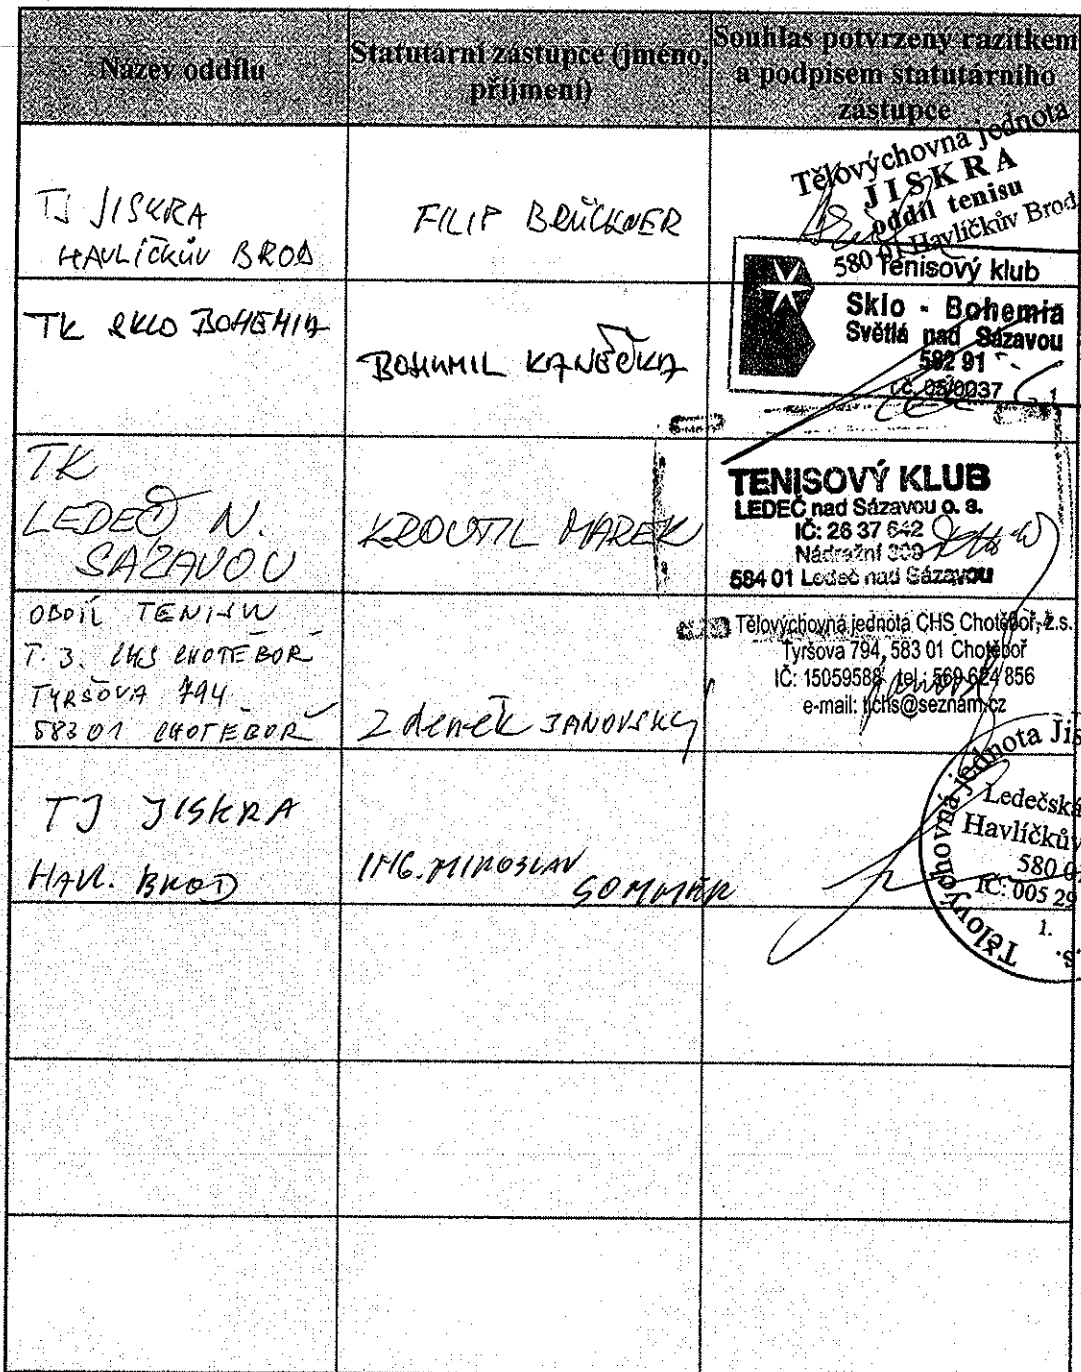 Název oddílu
Statutární zástupce (jméno,
příjmení)
Souhlas potvrzený razítkem
a podpisem statutárního
zástupce
TJ JISKRA
HAVLÍČKŮV BROD
FILIP BRÜCKNER
Tělovýchovná jednota
JISKRA
oddíl tenisu
580 01 Havlíčkův Brod
TK SKLO BOHEMIA
BOHUMIL KANĚČKA
Tenisový klub
Sklo - Bohemia
Světlá nad Sázavou
582 91
r.č. 05/0037
TK
LEDEČ N.
SÁZAVOU
KROUTIL MAREK
TENISOVÝ KLUB
LEDEČ nad Sázavou o. s.
IČ: 26 37 642
Nádražní
584 01 Ledeč nad Sázavou
ODDÍL TENISU
T.J. CHS CHOTĚBOŘ
TYRŠOVA 794
583 01 CHOTĚBOŘ
Zdeněk JANOVSKÝ
Tělovýchovná jednota CHS Chotěboř, z.s.
Tyršova 794, 583 01 Chotěboř
IČ: 15059588, tel.: 569 624 856
e-mail: tjchs@seznam.cz
TJ JISKRA
HAVL. BROD
ING. MIROSLAV
SOMMER
Tělovýchovná jednota Jis
Ledečská
Havlíčkův
580 01
IČ: 005 29
1.
.s.